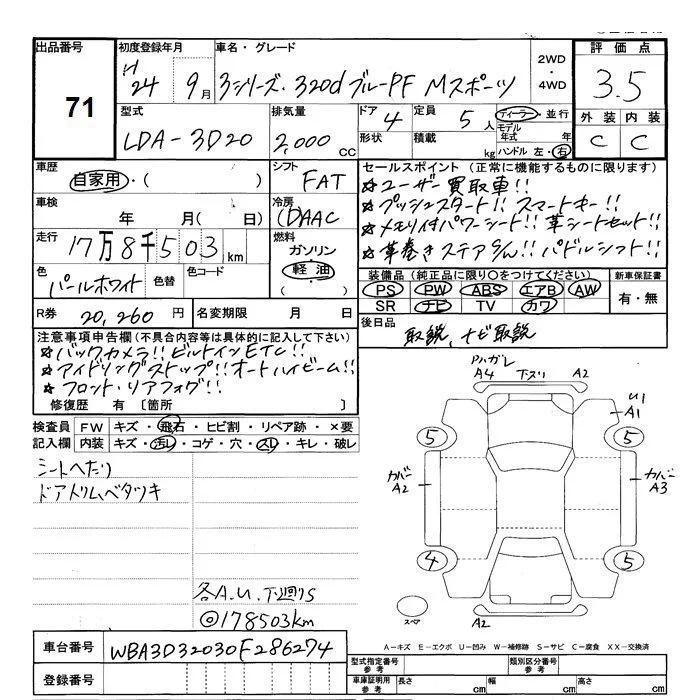 出品番号 初度登録年月 車名・グレード 2WD ・ 4WD 評価点
71 H24 9月 3シリーズ・320d ブルーPF Mスポーツ 3.5
型式 排気量 ドア 4 定員 5人 ディーラー・並行 外装 内装
LDA-3D20 2,000 CC 形状 積載 kg モデル年式 年 ハンドル 左・右 C C
車歴 自家用・( ) シフト FAT セールスポイント (正常に機能するものに限ります)
☆ユーザー買取車!!
車検 年 月( 日) 冷房 (D)AAC ☆プッシュスタート!! スマートキー!!
☆メモリ付パワーシート!! 革シートセット!!
走行 17万8千503km 燃料 ガソリン・軽油 ( ) ☆革巻きステアS/W!! パドルシフト!!
色 パールホワイト 色替 色コード 装備品 (純正品に限り○をつけてください) 新車保証書
PS PW ABS エアB AW 有・無
SR ナビ TV カワ
R券 20,260円 名変期限 月 日 後日品 取説、ナビ取説
注意事項申告欄 (不具合内容等は具体的に記入して下さい)
☆バックカメラ!! ビルトインETC!!
☆アイドリングストップ!! オートハイビーム!!
☆フロント・リアフォグ!!
修復歴 有 [箇所 ]
検査員 FW キズ・飛石・ヒビ割・リペア跡・×要
記入欄 内装 キズ・汚レ・コゲ・穴・スレ・キレ・破レ
シートへたり
ドアトリムベタツキ
各A.U.下廻りS
◎178503km
Pハガレ
A4 下スリ A2
U1
A1
5 5
カバー A2 カバー A3
4 5
スペア A2
A-キズ E-エクボ U-凹み W-補修跡 S-サビ C-腐食 XX-交換済
車台番号 WBA3D32030F286274
登録番号
型式指定番号 参考 類別区分番号 参考
車庫証明用 参考 長さ cm 幅 cm 高さ cm